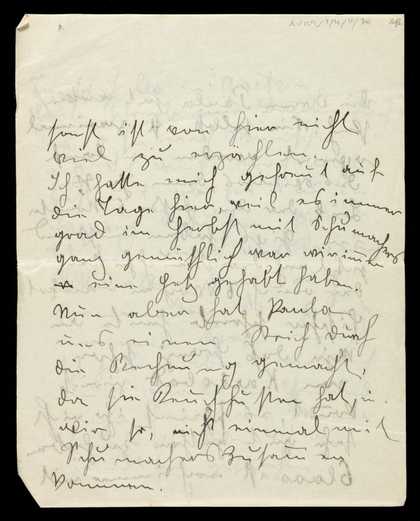 sonst ist von hier nicht
viel zu erzaehlen.
Ich hatte mich gefreut auf
die Tage hier, weil es immer
grad im Herbst mit Schumachers
ganz gemüthlich war wir immer
eine Hetz gehabt haben.
Nun aber hat Paula
uns einen Strich durch
die Rechnung gemacht,
da sie Keuchhusten hat, u.
wir so, nicht einmal mit
Schumachers zusammen
kommen.